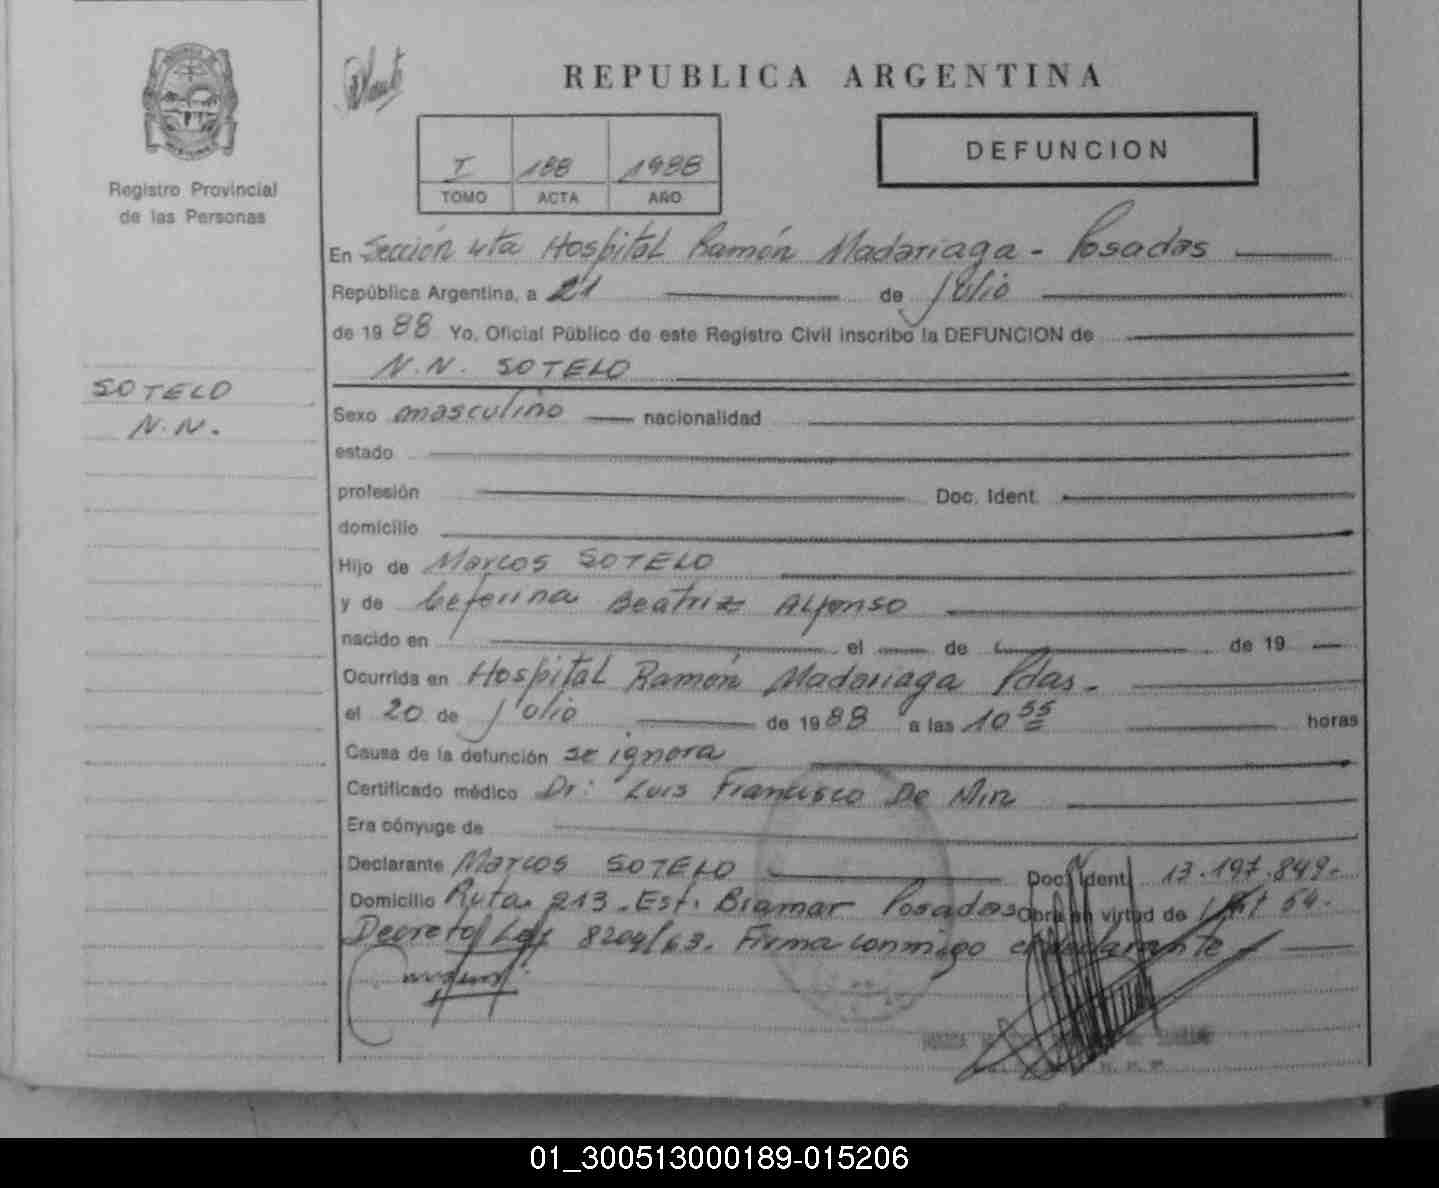 REPUBLICA ARGENTINA
Registro Provincial
de las Personas
I 188 1988
TOMO ACTA AÑO
DEFUNCION
En Sección 4ta Hospital Ramón Madariaga - Posadas
República Argentina, a 21 de julio
de 1988 Yo, Oficial Público de este Registro Civil inscribo la DEFUNCION de
N.N. SOTELO
SOTELO
N.N.
Sexo masculino nacionalidad
estado
profesión Doc. Ident.
domicilio
Hijo de Marcos SOTELO
y de Ceferina Beatriz Alfonso
nacido en el de de 19
Ocurrida en Hospital Ramón Madariaga Pdas.
el 20 de julio de 1988 a las 10 55 horas
Causa de la defunción se ignora
Certificado médico Dr: Luis Francisco De Min
Era cónyuge de
Declarante Marcos SOTELO Doc. Ident. 13.197.849.
Domicilio Ruta 213. Est. Biamar Posadas Obra en virtud de Art 64.
Decreto Ley 8204/63. Firma conmigo el declarante
01_300513000189-015206